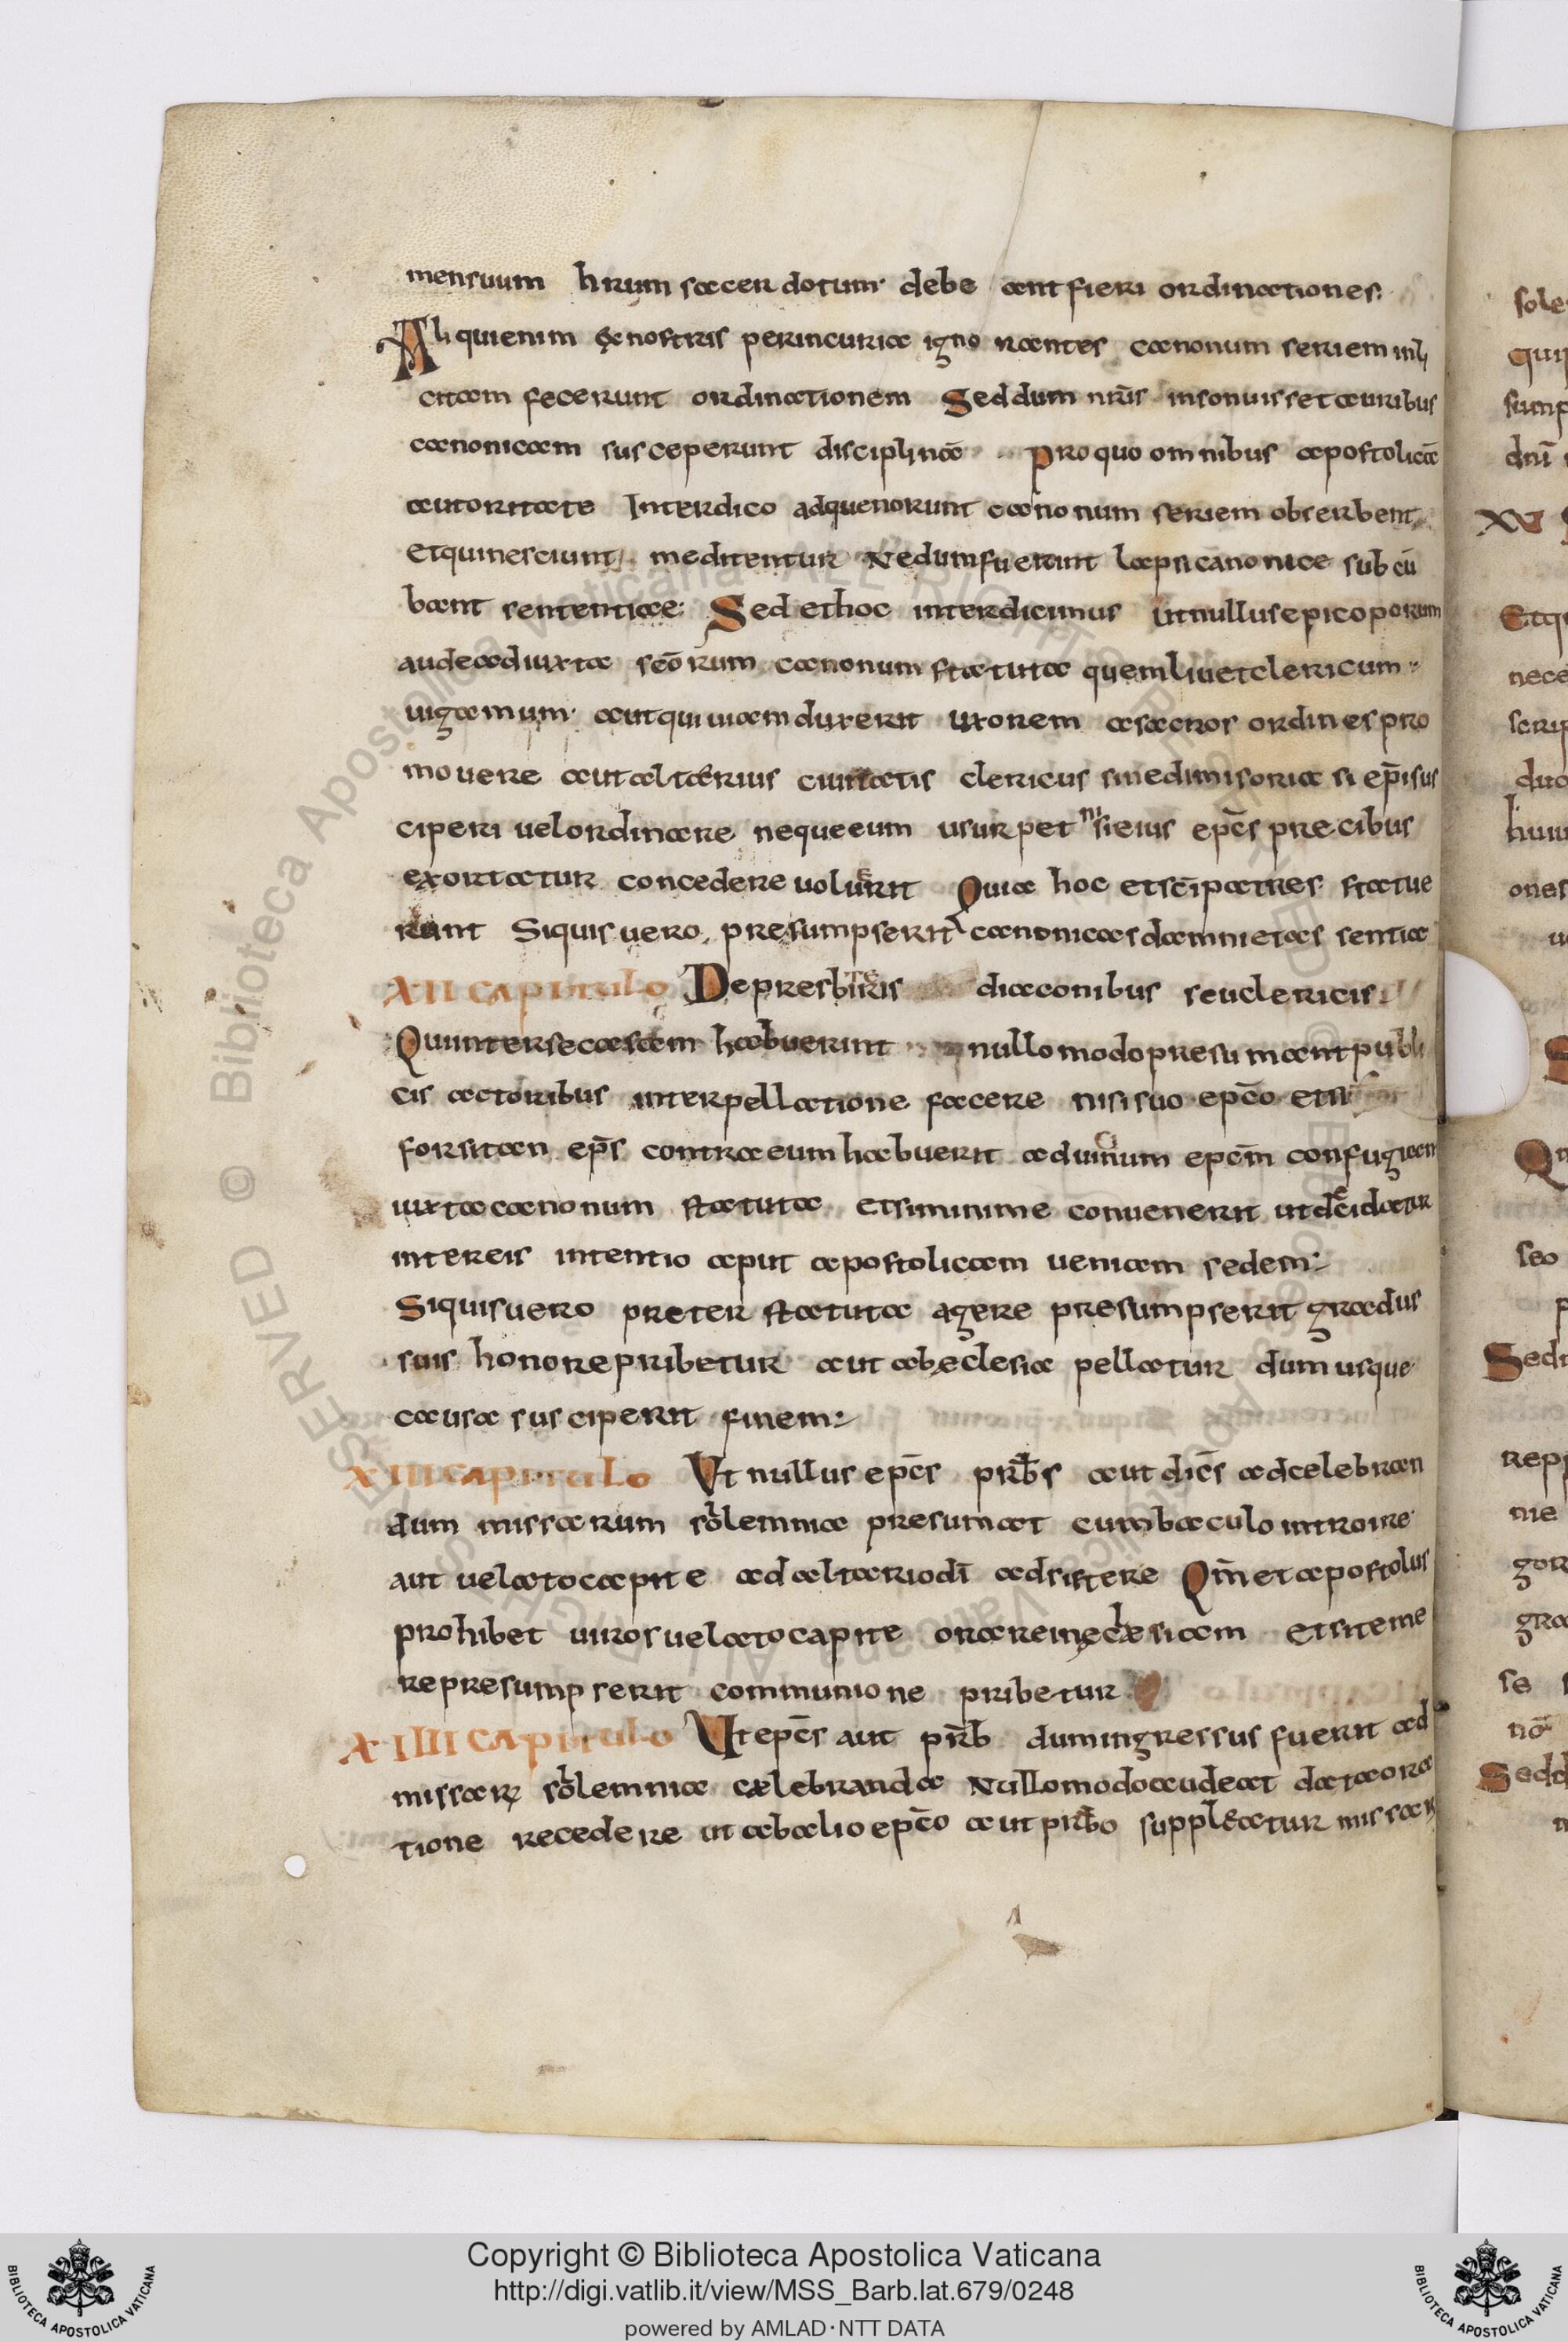 mensuum hrum sacerdotum debeant fieri ordinationes
Ali quienim ex nostris perincuria ignorantes canonum seriem inli
citam fecerunt ordinationem Sed dum nr̄is insonuisset auribus
canonicam susceperunt disciplinā Pro quo omnibus apostolicā
autoritate Interdico ad quenorunt canonum seriem obserbent
et quinesciunt meditentur Ne dum fuerint lapsi canonice subcū
bant sententiae Sed et hoc interdicimus ut nullus epicoporum
audead iuxta scōrum canonum statuta quemliuet clericum
uigamum aut qui uiam duxerit uxorem a sacros ordines pro
mouere aut altærius ciuitatis clericus sine dimisoria si ep̄i sus
ciperi uel ordinare neque eum usurpet nisi eius epc̄s precibus
exortatur concedere uoluerit Quia hoc et sc̄i patres statue
runt Siquis uero presumpserit canonicas damni etas sentia
XII capitulo De presbiteris diaconibus seu clericis
Qui inter se causam habuerint nullo modo presumant publi
cis actoribus interpellatione facere nisi suo epc̄o et si
forsitan ep̄s contra eum habuerit ad uicinum epc̄m confugian
iuxta canonum statuta et si minime conuenerit ut decidatur
inter eis intentio aput apostolicam ueniam sedem
Siquis uero preter statuta agere presumpserit gradus
suis honore pribetur aut ab eclesia pellatur dum usque
causa susciperit finem
XIII capitulo Ut nullus epc̄s prb̄s aut dic̄s ad celebran
dum missarum sollemnia presumat cum baculo introire
aut uelato capite ad altario dī adsistere Qm̄ et apostolus
prohibet uiros uelato capite orare in ęclesiam et si teme
re presumpserit communione pribetur
XIIII capitulo Ut epc̄s aut prb̄ dum ingressus fuerit ad
missarꝝ sollemnia cælebranda Nullo modo audeat data ora
tione recedere ut ab alio epc̄o aut prb̄o suppleatur missarꝝ
Copyright © Biblioteca Apostolica Vaticana
http://digi.vatlib.it/view/MSS_Barb.lat.679/0248
powered by AMLAD·NTT DATA